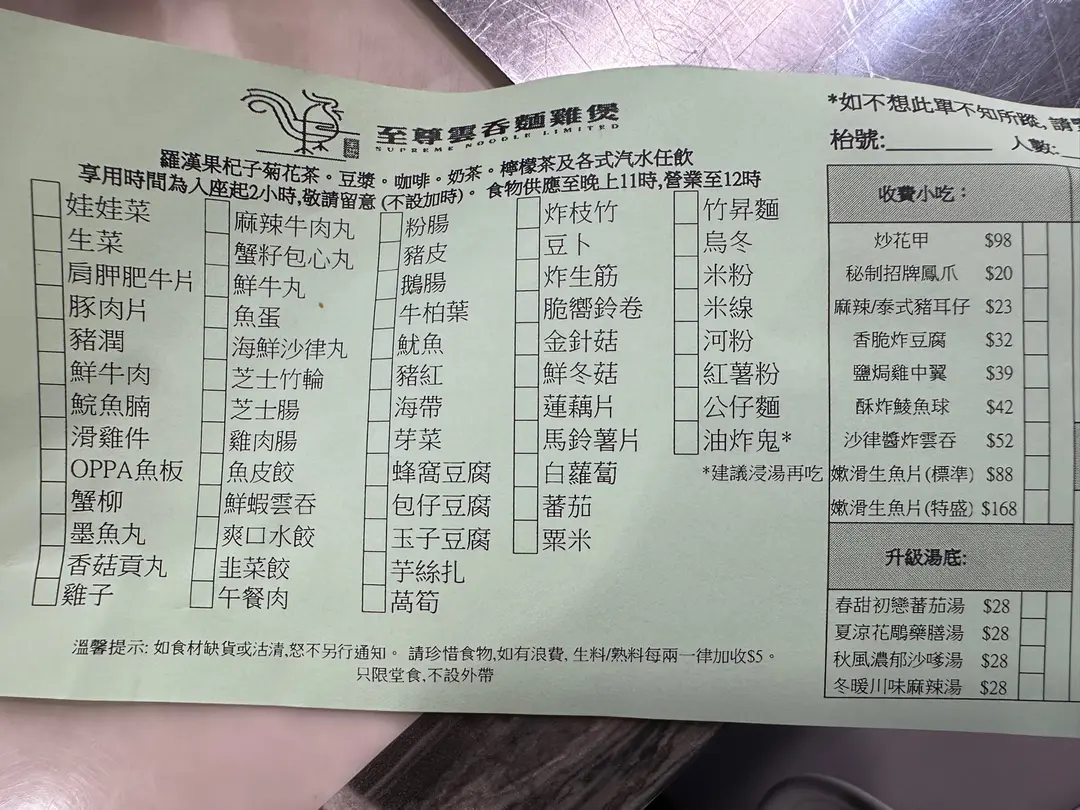 至尊雲吞麵雞煲
SUPREME NOODLE LIMITED
羅漢果杞子菊花茶。豆漿。咖啡。奶茶。檸檬茶及各式汽水任飲
享用時間為入座起2小時,敬請留意 (不設加時)。 食物供應至晚上11時,營業至12時
娃娃菜
生菜
肩胛肥牛片
豚肉片
豬潤
鮮牛肉
鯇魚腩
滑雞件
OPPA魚板
蟹柳
墨魚丸
香菇貢丸
雞子
麻辣牛肉丸
蟹籽包心丸
鮮牛丸
魚蛋
海鮮沙律丸
芝士竹輪
芝士腸
雞肉腸
魚皮餃
鮮蝦雲吞
爽口水餃
韭菜餃
午餐肉
粉腸
豬皮
鵝腸
牛柏葉
魷魚
豬紅
海帶
芽菜
蜂窩豆腐
包仔豆腐
玉子豆腐
芋絲扎
萵筍
炸枝竹
豆卜
炸生筋
脆嚮鈴卷
金針菇
鮮冬菇
蓮藕片
馬鈴薯片
白蘿蔔
蕃茄
粟米
竹昇麵
烏冬
米粉
米線
河粉
紅薯粉
公仔麵
油炸鬼*
*建議浸湯再吃
溫馨提示: 如食材缺貨或沽清,恕不另行通知。 請珍惜食物,如有浪費, 生料/熟料每兩一律加收$5。
只限堂食,不設外帶
*如不想此單不知所蹤, 請
枱號:
人數:
收費小吃：
炒花甲 $98
秘制招牌鳳爪 $20
麻辣/泰式豬耳仔 $23
香脆炸豆腐 $32
鹽焗雞中翼 $39
酥炸鯪魚球 $42
沙律醬炸雲吞 $52
嫩滑生魚片(標準) $88
嫩滑生魚片(特盛) $168
升級湯底:
春甜初戀蕃茄湯 $28
夏涼花鵰藥膳湯 $28
秋風濃郁沙嗲湯 $28
冬暖川味麻辣湯 $28